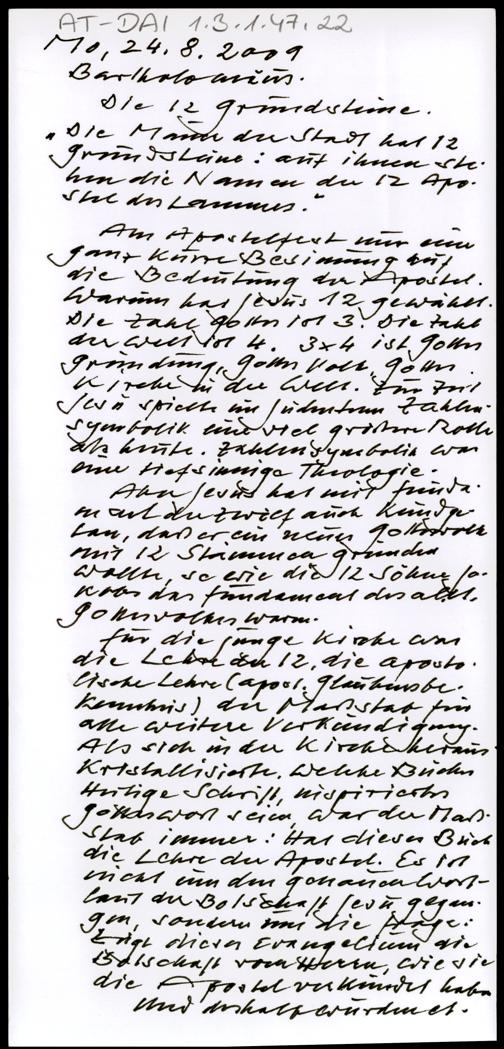 AT-DAI 1.3.1.47.22
Mo, 24.8.2009
Bartholomäus.
Die 12 Grundsteine.
"Die Mauer der Stadt hat 12
Grundsteine: auf ihnen ste-
hen die Namen der 12 Apo-
stel des Lammes."
Am Apostelfest nur eine
ganz kurze Besinnung auf
die Bedeutung der Apostel.
Warum hat Jesus 12 gewählt.
Die Zahl Gottes ist 3. Die Zahl
der Welt ist 4. 3x4 ist Gottes
Gründung, Gottes Volk, Gottes
Kirche in der Welt. Zur Zeit
Jesu spielte im Judentum Zahlen-
symbolik eine viel größere Rolle
als heute. Zahlensymbolik war
eine tiefsinnige Theologie.
Aber Jesus hat mit Funda-
ment der Zwölf auch kundge-
tan, daß er ein neues Gottesvolk
mit 12 Stämmen gründen
wollte, so wie die 12 Söhne Ja-
kobs das Fundament des altt.
Gottesvolkes waren.
Für die junge Kirche war
die Lehre der 12, die aposto-
lische Lehre (apost. Glaubensbe-
kenntnis) der Maßstab für
alle weitere Verkündigung.
Als sich in der Kirche heraus
kristallisierte, welche Bücher
Heilige Schrift, inspiriertes
Gotteswort seien, war der Maß-
stab immer: Hat dieses Buch
die Lehre der Apostel. Es ist
nicht um den genauen Wort-
laut der Botschaft Jesu gegan-
gen, sondern um die Frage:
Zeigt dieses Evangelium die
Botschaft vom Herrn, wie sie
die Apostel verkündet haben
Und deshalb wurden